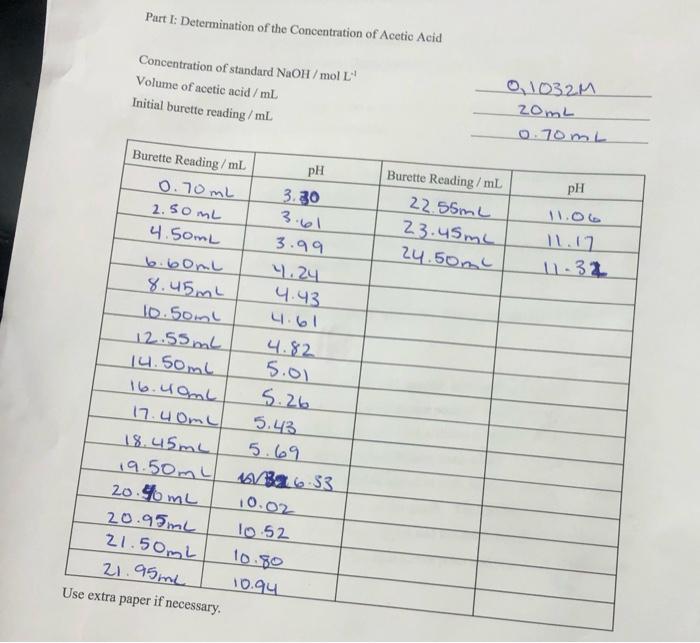 Part I: Determination of the Concentration of Acetic Acid
Concentration of standard NaOH / mol L⁻¹ 0,1032M
Volume of acetic acid / mL 20mL
Initial burette reading / mL 0.70mL
Burette Reading / mL pH Burette Reading / mL pH
0.70mL 3.30 22.55mL 11.06
2.50mL 3.61 23.45mL 11.17
4.50mL 3.99 24.50mL 11.32
6.60mL 4.24
8.45mL 4.43
10.50mL 4.61
12.55mL 4.82
14.50mL 5.01
16.40mL 5.26
17.40mL 5.43
18.45mL 5.69
19.50mL 6.53
20.mL 10.02
20.95mL 10.52
21.50mL 10.80
21.95mL 10.94
Use extra paper if necessary.